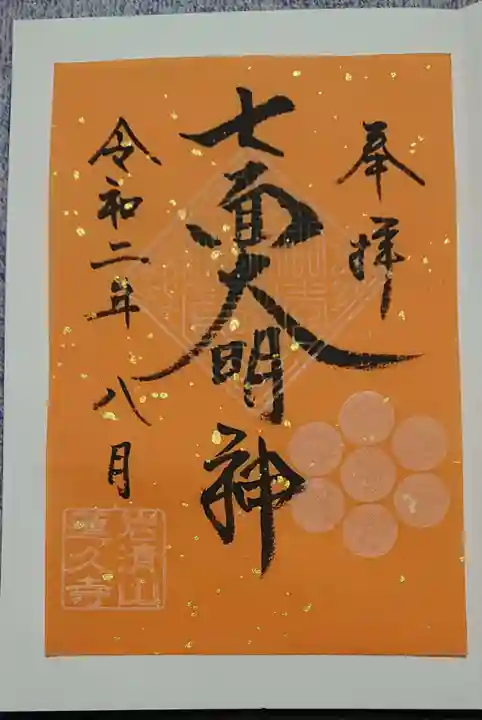 奉拝
七面大明神
令和二年八月
岩清山